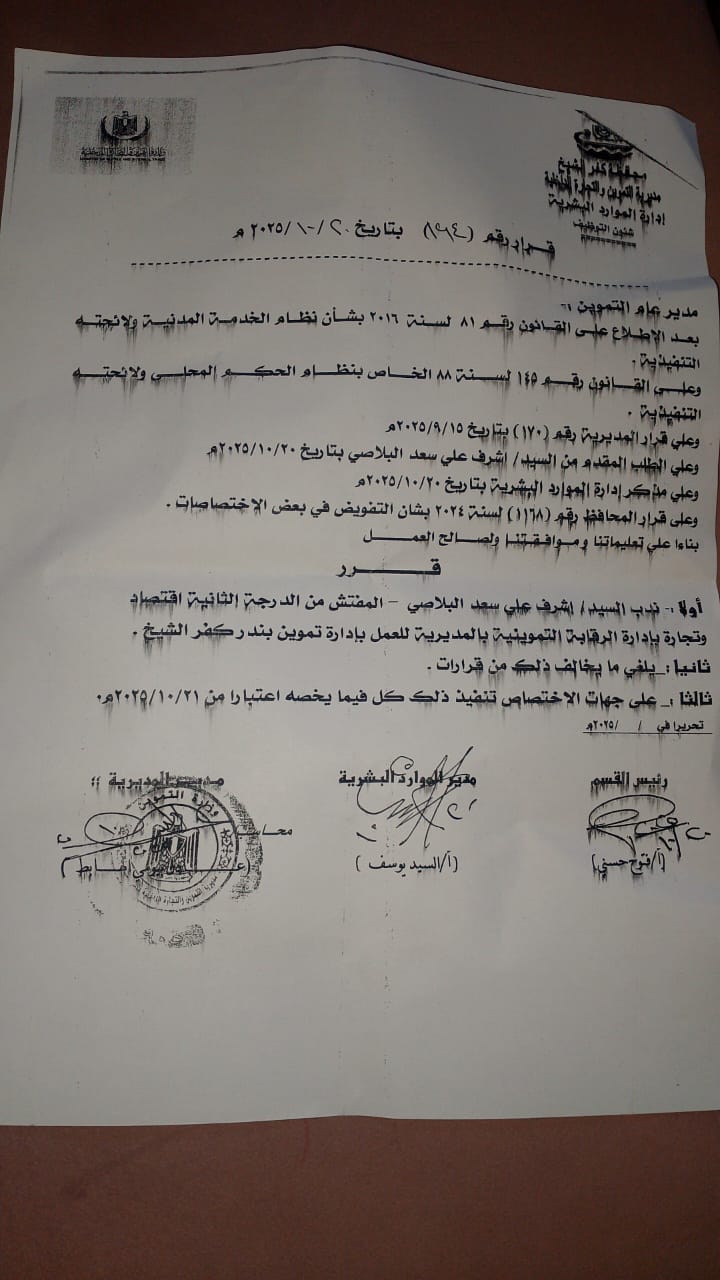 محافظة كفر الشيخ
مديرية التموين والتجارة الداخلية
إدارة الموارد البشرية
شئون التوظيف
قرار رقم ( ) بتاريخ ٢٠/١٠/٢٠٢٥ م
مدير عام التموين :-
بعد الإطلاع على القانون رقم ٨١ لسنة ٢٠١٦ بشأن نظام الخدمة المدنية ولائحته
التنفيذية .
وعلى القانون رقم ١٤٥ لسنة ٨٨ الخاص بنظام الحكم المحلي ولائحته
التنفيذية .
وعلي قرار المديرية رقم (١٧٠) بتاريخ ٢٠٢٥/٩/١٥م
وعلي الطلب المقدم من السيد/ اشرف علي سعد البلاصي بتاريخ ٢٠٢٥/١٠/٢٠م
وعلي مذكر إدارة الموارد البشرية بتاريخ ٢٠٢٥/١٠/٢٠م
وعلى قرار المحافظ رقم (١١٦٨) لسنة ٢٠٢٤ بشان التفويض في بعض الإختصاصات .
بناءا علي تعليماتنا وموافقتنا ولصالح العمل
قــــرر
أولا :- ندب السيد/ اشرف علي سعد البلاصي – المفتش من الدرجة الثانية اقتصاد
وتجارة بإدارة الرقابة التموينية بالمديرية للعمل بإدارة تموين بندر كفر الشيخ .
ثانيا :_ يلغي ما يخالف ذلك من قرارات .
ثالثا :_ علي جهات الاختصاص تنفيذ ذلك كل فيما يخصه اعتبارا من ٢٠٢٥/١٠/٢١م.
تحريرا في / /٢٠٢٥م
رئيس القسم
مدير الموارد البشرية
مدير المديرية ،،
محاسب
(أ/فتوح حسني)
(أ/السيد يوسف )
وزارة التموين